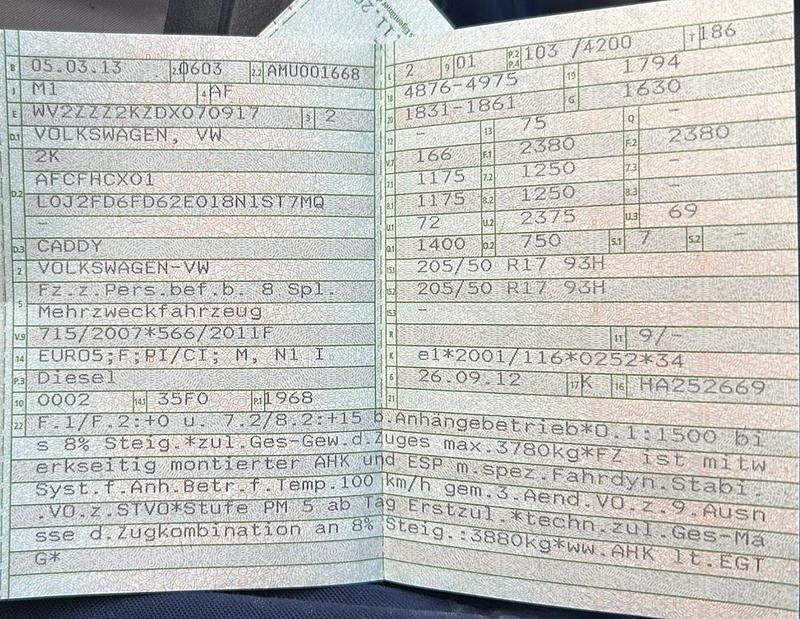 11.20
B 05.03.13 2.1 0603 2.2 AMU001668
J M1 4 AF
E WV2ZZZ2KZDX070917 3 2
D.1 VOLKSWAGEN, VW
2K
D.2 AFCFHCX01
LOJ2FD6FD62E018N1ST7MQ
-
D.3 CADDY
2 VOLKSWAGEN-VW
5 Fz.z.Pers.bef.b. 8 Spl.
Mehrzweckfahrzeug
V.9 715/2007*566/2011F
14 EURO5;F;PI/CI; M, N1 I
P.3 Diesel
10 0002 14.1 35F0 P.1 1968
L 2 9 01 P.2 P.4 103 /4200 T 186
18 4876-4975 19 1794
20 1831-1861 G 1630
12 - 13 75 Q -
V.7 166 F.1 2380 F.2 2380
7.1 1175 7.2 1250 7.3 -
8.1 1175 8.2 1250 8.3 -
U.1 72 U.2 2375 U.3 69
O.1 1400 O.2 750 S.1 7 S.2 -
15.1 205/50 R17 93H
15.2 205/50 R17 93H
15.3 -
R 11 9/-
K e1*2001/116*0252*34
6 26.09.12 17 K 16 HA252669
21
22 F.1/F.2:+0 u. 7.2/8.2:+15 b.Anhängebetrieb*O.1:1500 bi
s 8% Steig.*zul.Ges-Gew.d.Zuges max.3780kg*FZ ist mitw
erkseitig montierter AHK und ESP m.spez.Fahrdyn.Stabi.
Syst.f.Anh.Betr.f.Temp.100 km/h gem.3.Aend.VO.z.9.Ausn
.VO.z.STVO*Stufe PM 5 ab Tag Erstzul.*techn.zul.Ges-Ma
sse d.Zugkombination an 8% Steig.:3880kg*ww.AHK lt.EGT
G*